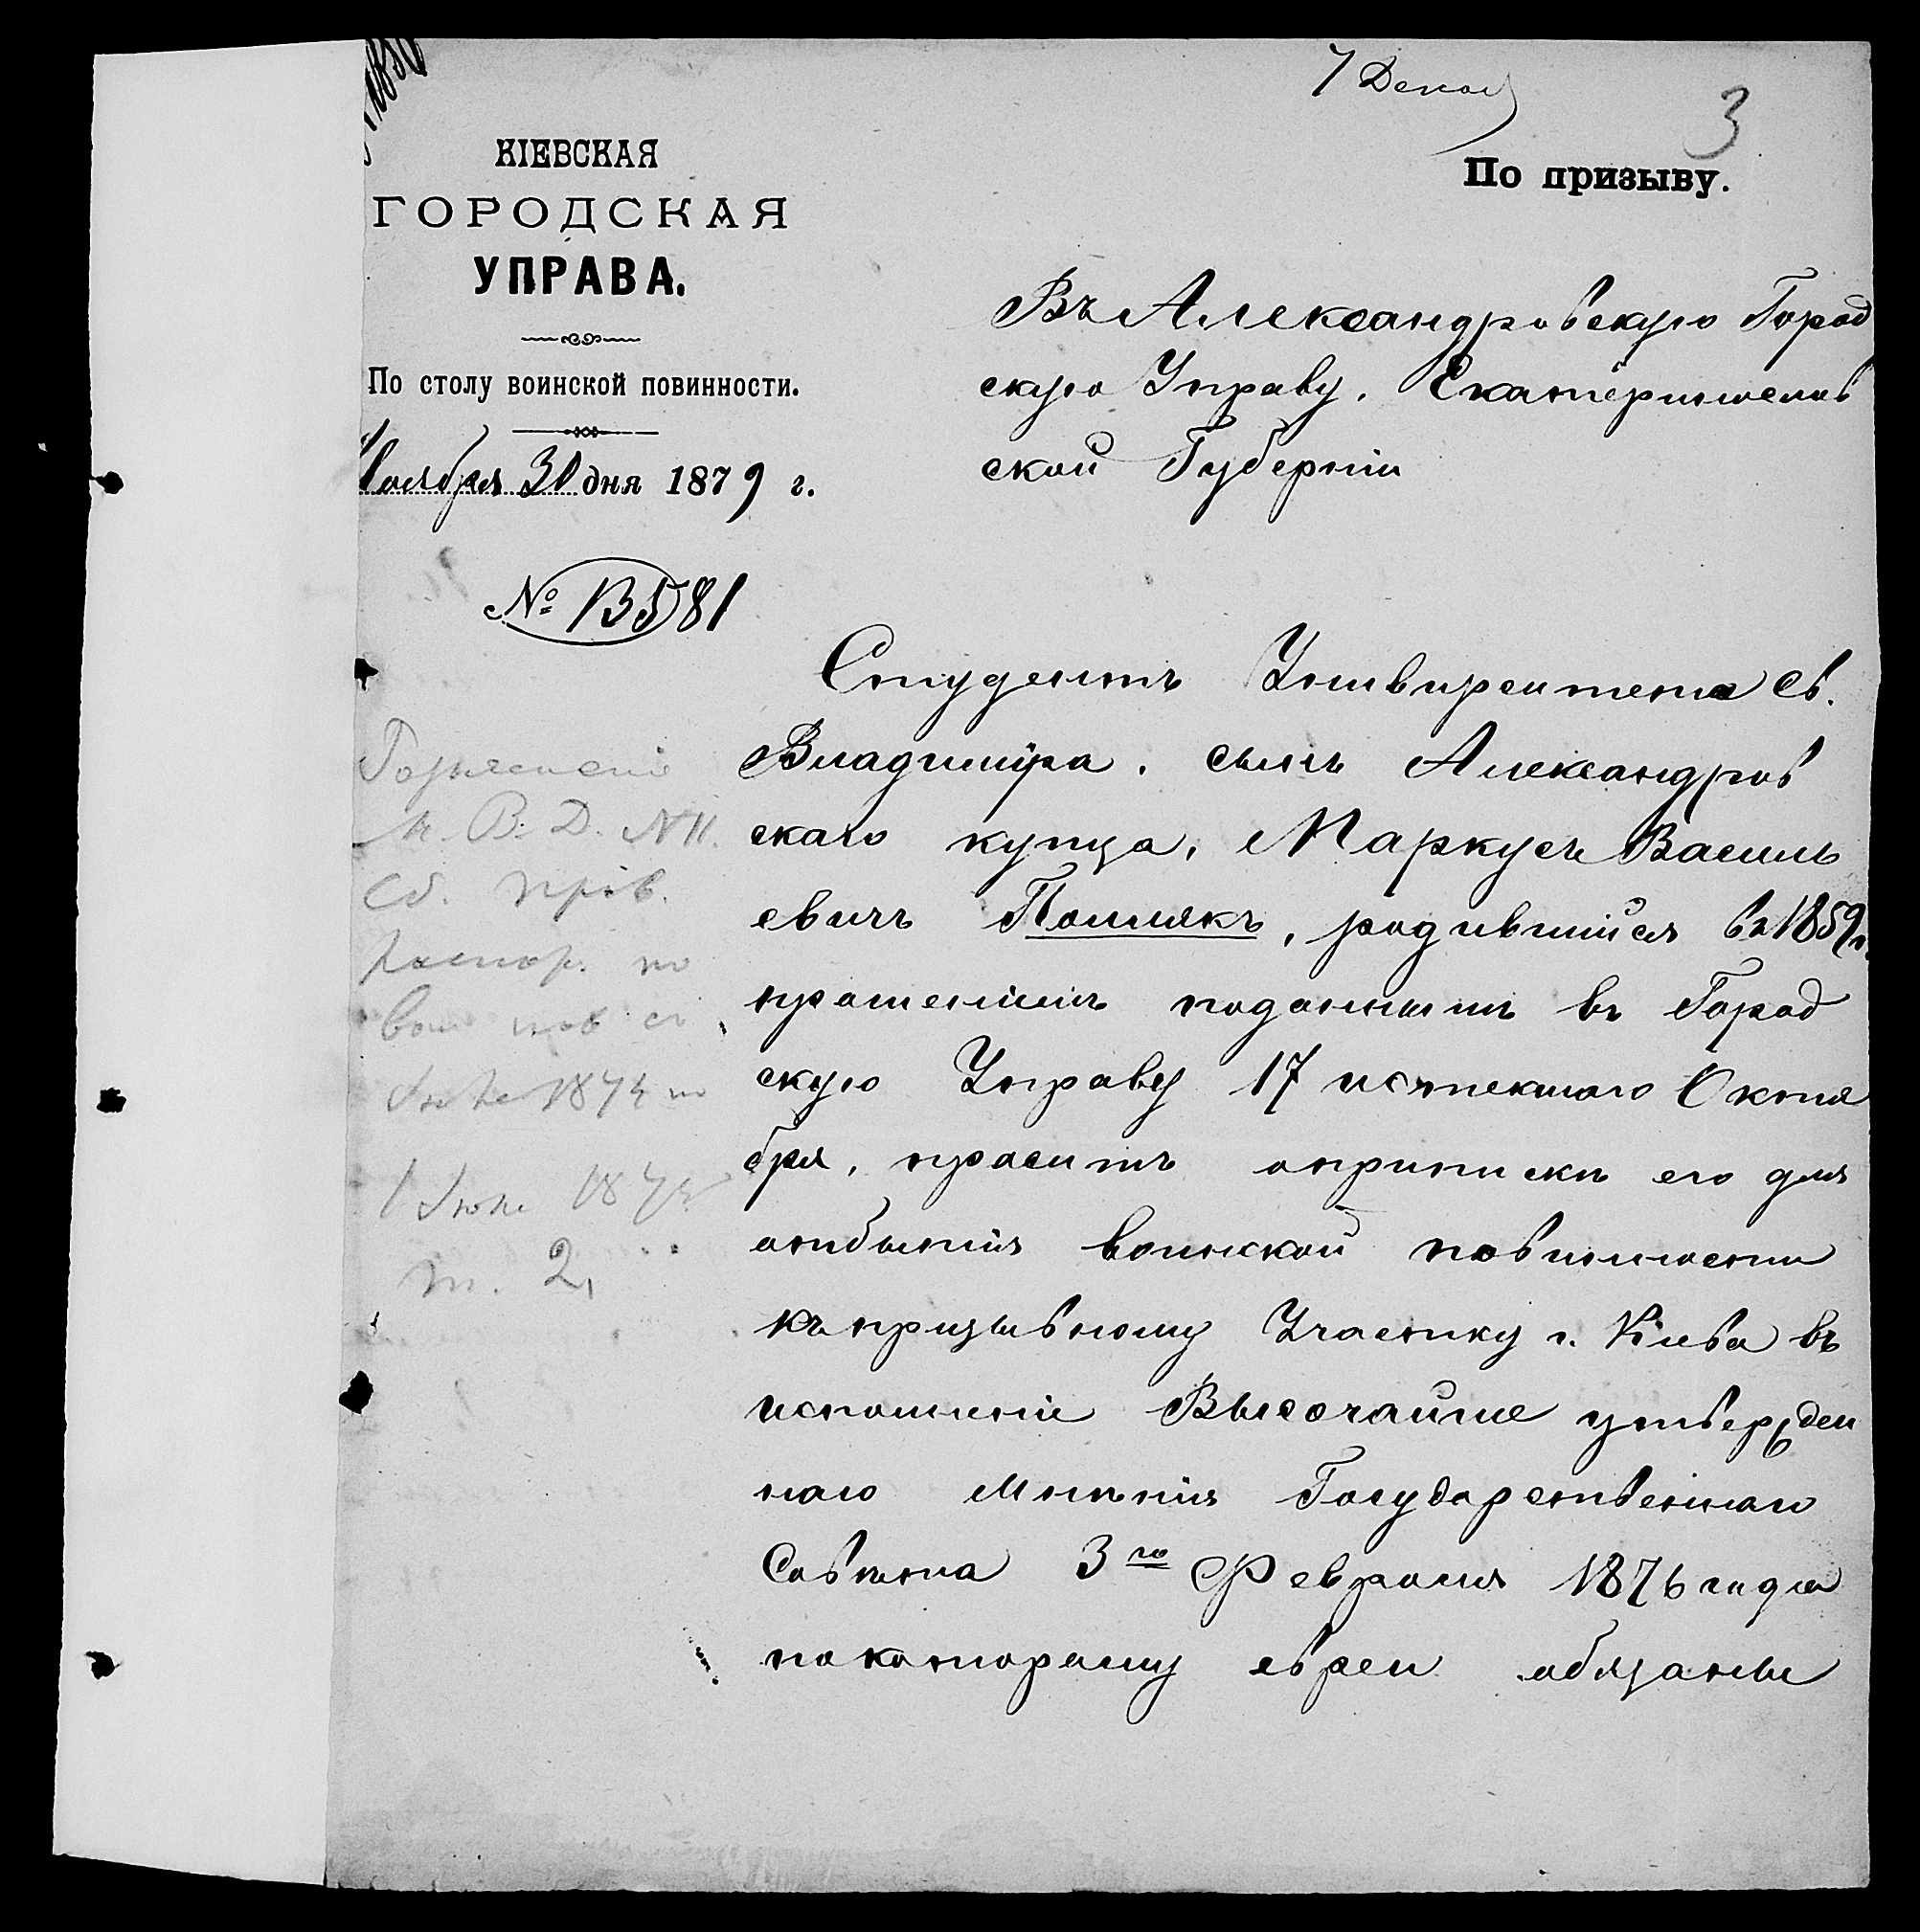 7 Декаб
3
КІЕВСКАЯ
ГОРОДСКАЯ
УПРАВА.
По столу воинской повинности.
Ноября 30 дня 1879 г.
№ 13581
По призыву.
Въ Александровскую Город
скую Управу, Екатеринослав
ской Губерніи
Студентъ Университета Св.
Владиміра, сынъ Александров
скаго купца, Маркусъ Василь
евичъ Полякъ, родившійся въ 1859 г.
прошеніемъ поданнымъ въ Город
скую Управу 17 истекшаго Октя
бря, проситъ о припискѣ его для
отбытія воинской повинности
къ призывному Участку г. Кіева въ
исполненіе Высочайше утвержден
наго мнѣнія Государственнаго
Совѣта 3го Февраля 1876 года
по которому евреи обязаны
Разъясненіе
М. В. Д. № 11.
Сб. прав.
распор. по
воин пов съ
1874 по
1 Іюня 187
т. 2,